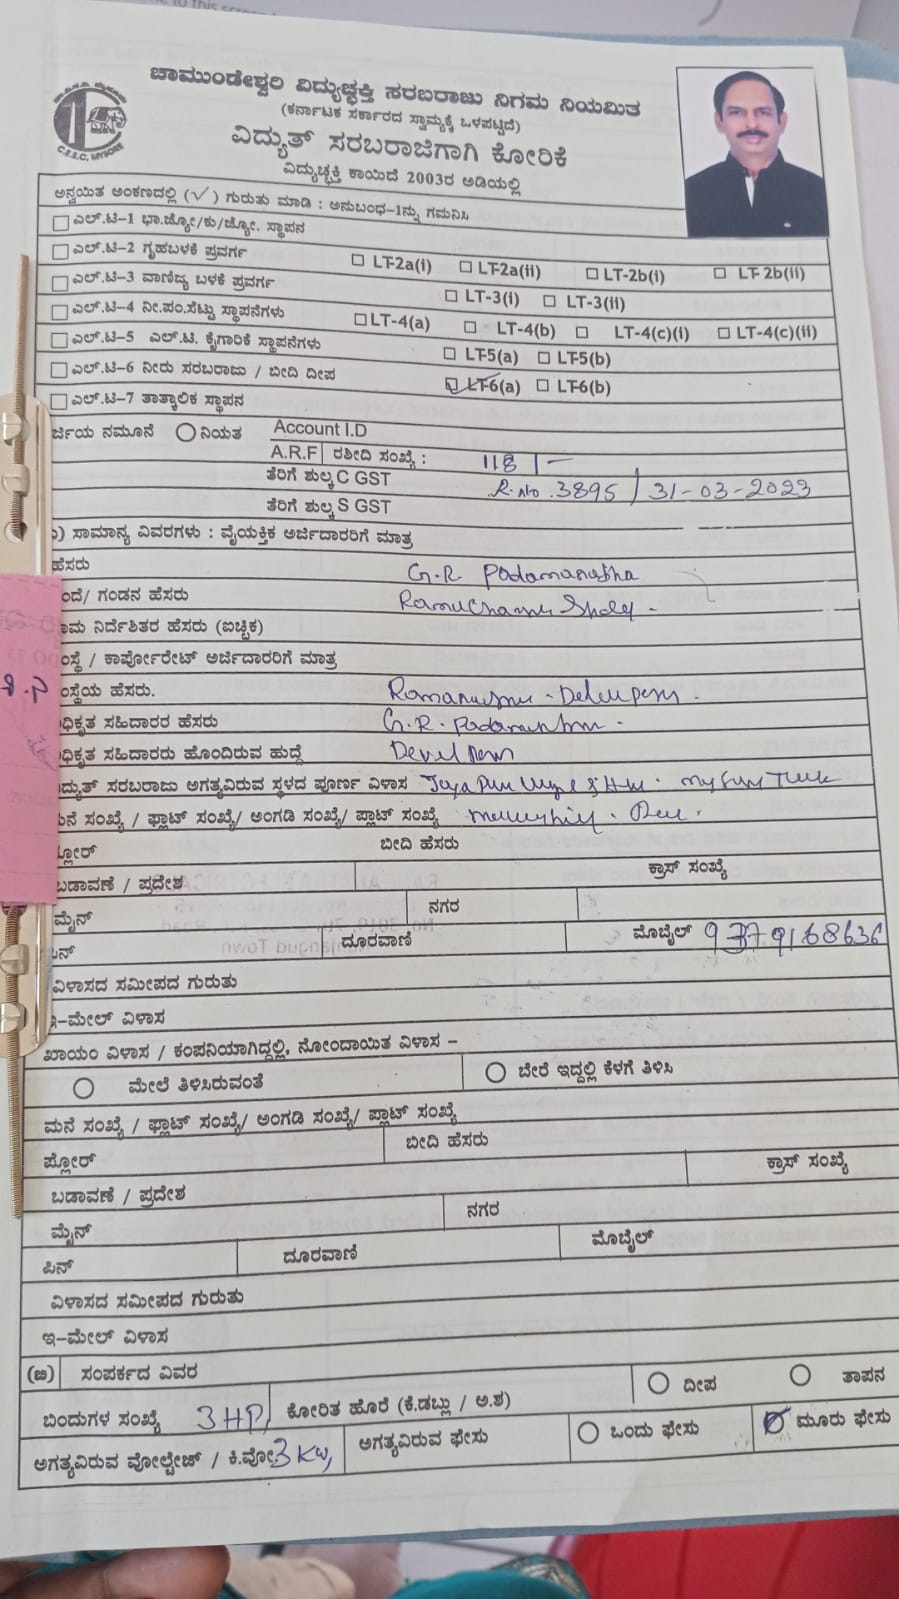 ಚಾಮುಂಡೇಶ್ವರಿ ವಿದ್ಯುಚ್ಛಕ್ತಿ ಸರಬರಾಜು ನಿಗಮ ನಿಯಮಿತ
(ಕರ್ನಾಟಕ ಸರ್ಕಾರದ ಸ್ವಾಮ್ಯಕ್ಕೆ ಒಳಪಟ್ಟಿದೆ)
ವಿದ್ಯುತ್ ಸರಬರಾಜಿಗಾಗಿ ಕೋರಿಕೆ
ವಿದ್ಯುಚ್ಛಕ್ತಿ ಕಾಯಿದೆ 2003ರ ಅಡಿಯಲ್ಲಿ
C.E.S.C, MYSORE
ಅನ್ವಯಿತ ಅಂಕಣದಲ್ಲಿ (✓) ಗುರುತು ಮಾಡಿ : ಅನುಬಂಧ-1ನ್ನು ಗಮನಿಸಿ
ಎಲ್.ಟಿ-1 ಭಾ.ಜ್ಯೋ/ಕು/ಜ್ಯೋ. ಸ್ಥಾಪನ
ಎಲ್.ಟಿ-2 ಗೃಹಬಳಕೆ ಪ್ರವರ್ಗ LT-2a(i) LT-2a(ii) LT-2b(i) LT-2b(ii)
ಎಲ್.ಟಿ-3 ವಾಣಿಜ್ಯ ಬಳಕೆ ಪ್ರವರ್ಗ LT-3(i) LT-3(ii)
ಎಲ್.ಟಿ-4 ನೀ.ಪಂ.ಸೆಟ್ಟು ಸ್ಥಾಪನೆಗಳು LT-4(a) LT-4(b) LT-4(c)(i) LT-4(c)(ii)
ಎಲ್.ಟಿ-5 ಎಲ್.ಟಿ. ಕೈಗಾರಿಕೆ ಸ್ಥಾಪನೆಗಳು LT-5(a) LT-5(b)
ಎಲ್.ಟಿ-6 ನೀರು ಸರಬರಾಜು / ಬೀದಿ ದೀಪ LT-6(a) LT-6(b)
ಎಲ್.ಟಿ-7 ತಾತ್ಕಾಲಿಕ ಸ್ಥಾಪನ
ರ್ಜಿಯ ನಮೂನೆ ನಿಯತ Account I.D
A.R.F ರಶೀದಿ ಸಂಖ್ಯೆ : 118/-
ತೆರಿಗೆ ಶುಲ್ಕ C GST R.No.3895/31-03-2023
ತೆರಿಗೆ ಶುಲ್ಕ S GST
) ಸಾಮಾನ್ಯ ವಿವರಗಳು : ವೈಯಕ್ತಿಕ ಅರ್ಜಿದಾರರಿಗೆ ಮಾತ್ರ
ಹೆಸರು G.R. Padamanabha
ಂದೆ/ ಗಂಡನ ಹೆಸರು
ಾಮ ನಿರ್ದೇಶಿತರ ಹೆಸರು (ಐಚ್ಚಿಕ)
ಂಸ್ಥೆ / ಕಾರ್ಪೋರೇಟ್ ಅರ್ಜಿದಾರರಿಗೆ ಮಾತ್ರ
ಂಸ್ಥೆಯ ಹೆಸರು.
ಧಿಕೃತ ಸಹಿದಾರರ ಹೆಸರು G.R.
ಧಿಕೃತ ಸಹಿದಾರರು ಹೊಂದಿರುವ ಹುದ್ದೆ
ದ್ಯುತ್ ಸರಬರಾಜು ಅಗತ್ಯವಿರುವ ಸ್ಥಳದ ಪೂರ್ಣ ವಿಳಾಸ
ನೆ ಸಂಖ್ಯೆ / ಫ್ಲಾಟ್ ಸಂಖ್ಯೆ/ ಅಂಗಡಿ ಸಂಖ್ಯೆ/ ಪ್ಲಾಟ್ ಸಂಖ್ಯೆ
್ಲೋರ್ ಬೀದಿ ಹೆಸರು
ಬಡಾವಣೆ / ಪ್ರದೇಶ ಕ್ರಾಸ್ ಸಂಖ್ಯೆ
ಮೈನ್ ನಗರ
ನ್ ದೂರವಾಣಿ ಮೊಬೈಲ್ 9379168636
ವಿಳಾಸದ ಸಮೀಪದ ಗುರುತು
ಇ-ಮೇಲ್ ವಿಳಾಸ
ಖಾಯಂ ವಿಳಾಸ / ಕಂಪನಿಯಾಗಿದ್ದಲ್ಲಿ, ನೋಂದಾಯಿತ ವಿಳಾಸ -
ಮೇಲೆ ತಿಳಿಸಿರುವಂತೆ ಬೇರೆ ಇದ್ದಲ್ಲಿ ಕೆಳಗೆ ತಿಳಿಸಿ
ಮನೆ ಸಂಖ್ಯೆ / ಫ್ಲಾಟ್ ಸಂಖ್ಯೆ/ ಅಂಗಡಿ ಸಂಖ್ಯೆ/ ಪ್ಲಾಟ್ ಸಂಖ್ಯೆ
ಪ್ಲೋರ್ ಬೀದಿ ಹೆಸರು
ಬಡಾವಣೆ / ಪ್ರದೇಶ ಕ್ರಾಸ್ ಸಂಖ್ಯೆ
ಮೈನ್ ನಗರ
ಪಿನ್ ದೂರವಾಣಿ ಮೊಬೈಲ್
ವಿಳಾಸದ ಸಮೀಪದ ಗುರುತು
ಇ-ಮೇಲ್ ವಿಳಾಸ
(ಜಿ) ಸಂಪರ್ಕದ ವಿವರ
ಬಿಂದುಗಳ ಸಂಖ್ಯೆ 3HP, ಕೋರಿತ ಹೊರೆ (ಕೆ.ಡಬ್ಲು / ಅ.ಶ) ದೀಪ ತಾಪನ
ಅಗತ್ಯವಿರುವ ವೋಲ್ಟೇಜ್ / ಕಿ.ವೋ. 3KW, ಅಗತ್ಯವಿರುವ ಫೇಸು ಒಂದು ಫೇಸು ಮೂರು ಫೇಸು